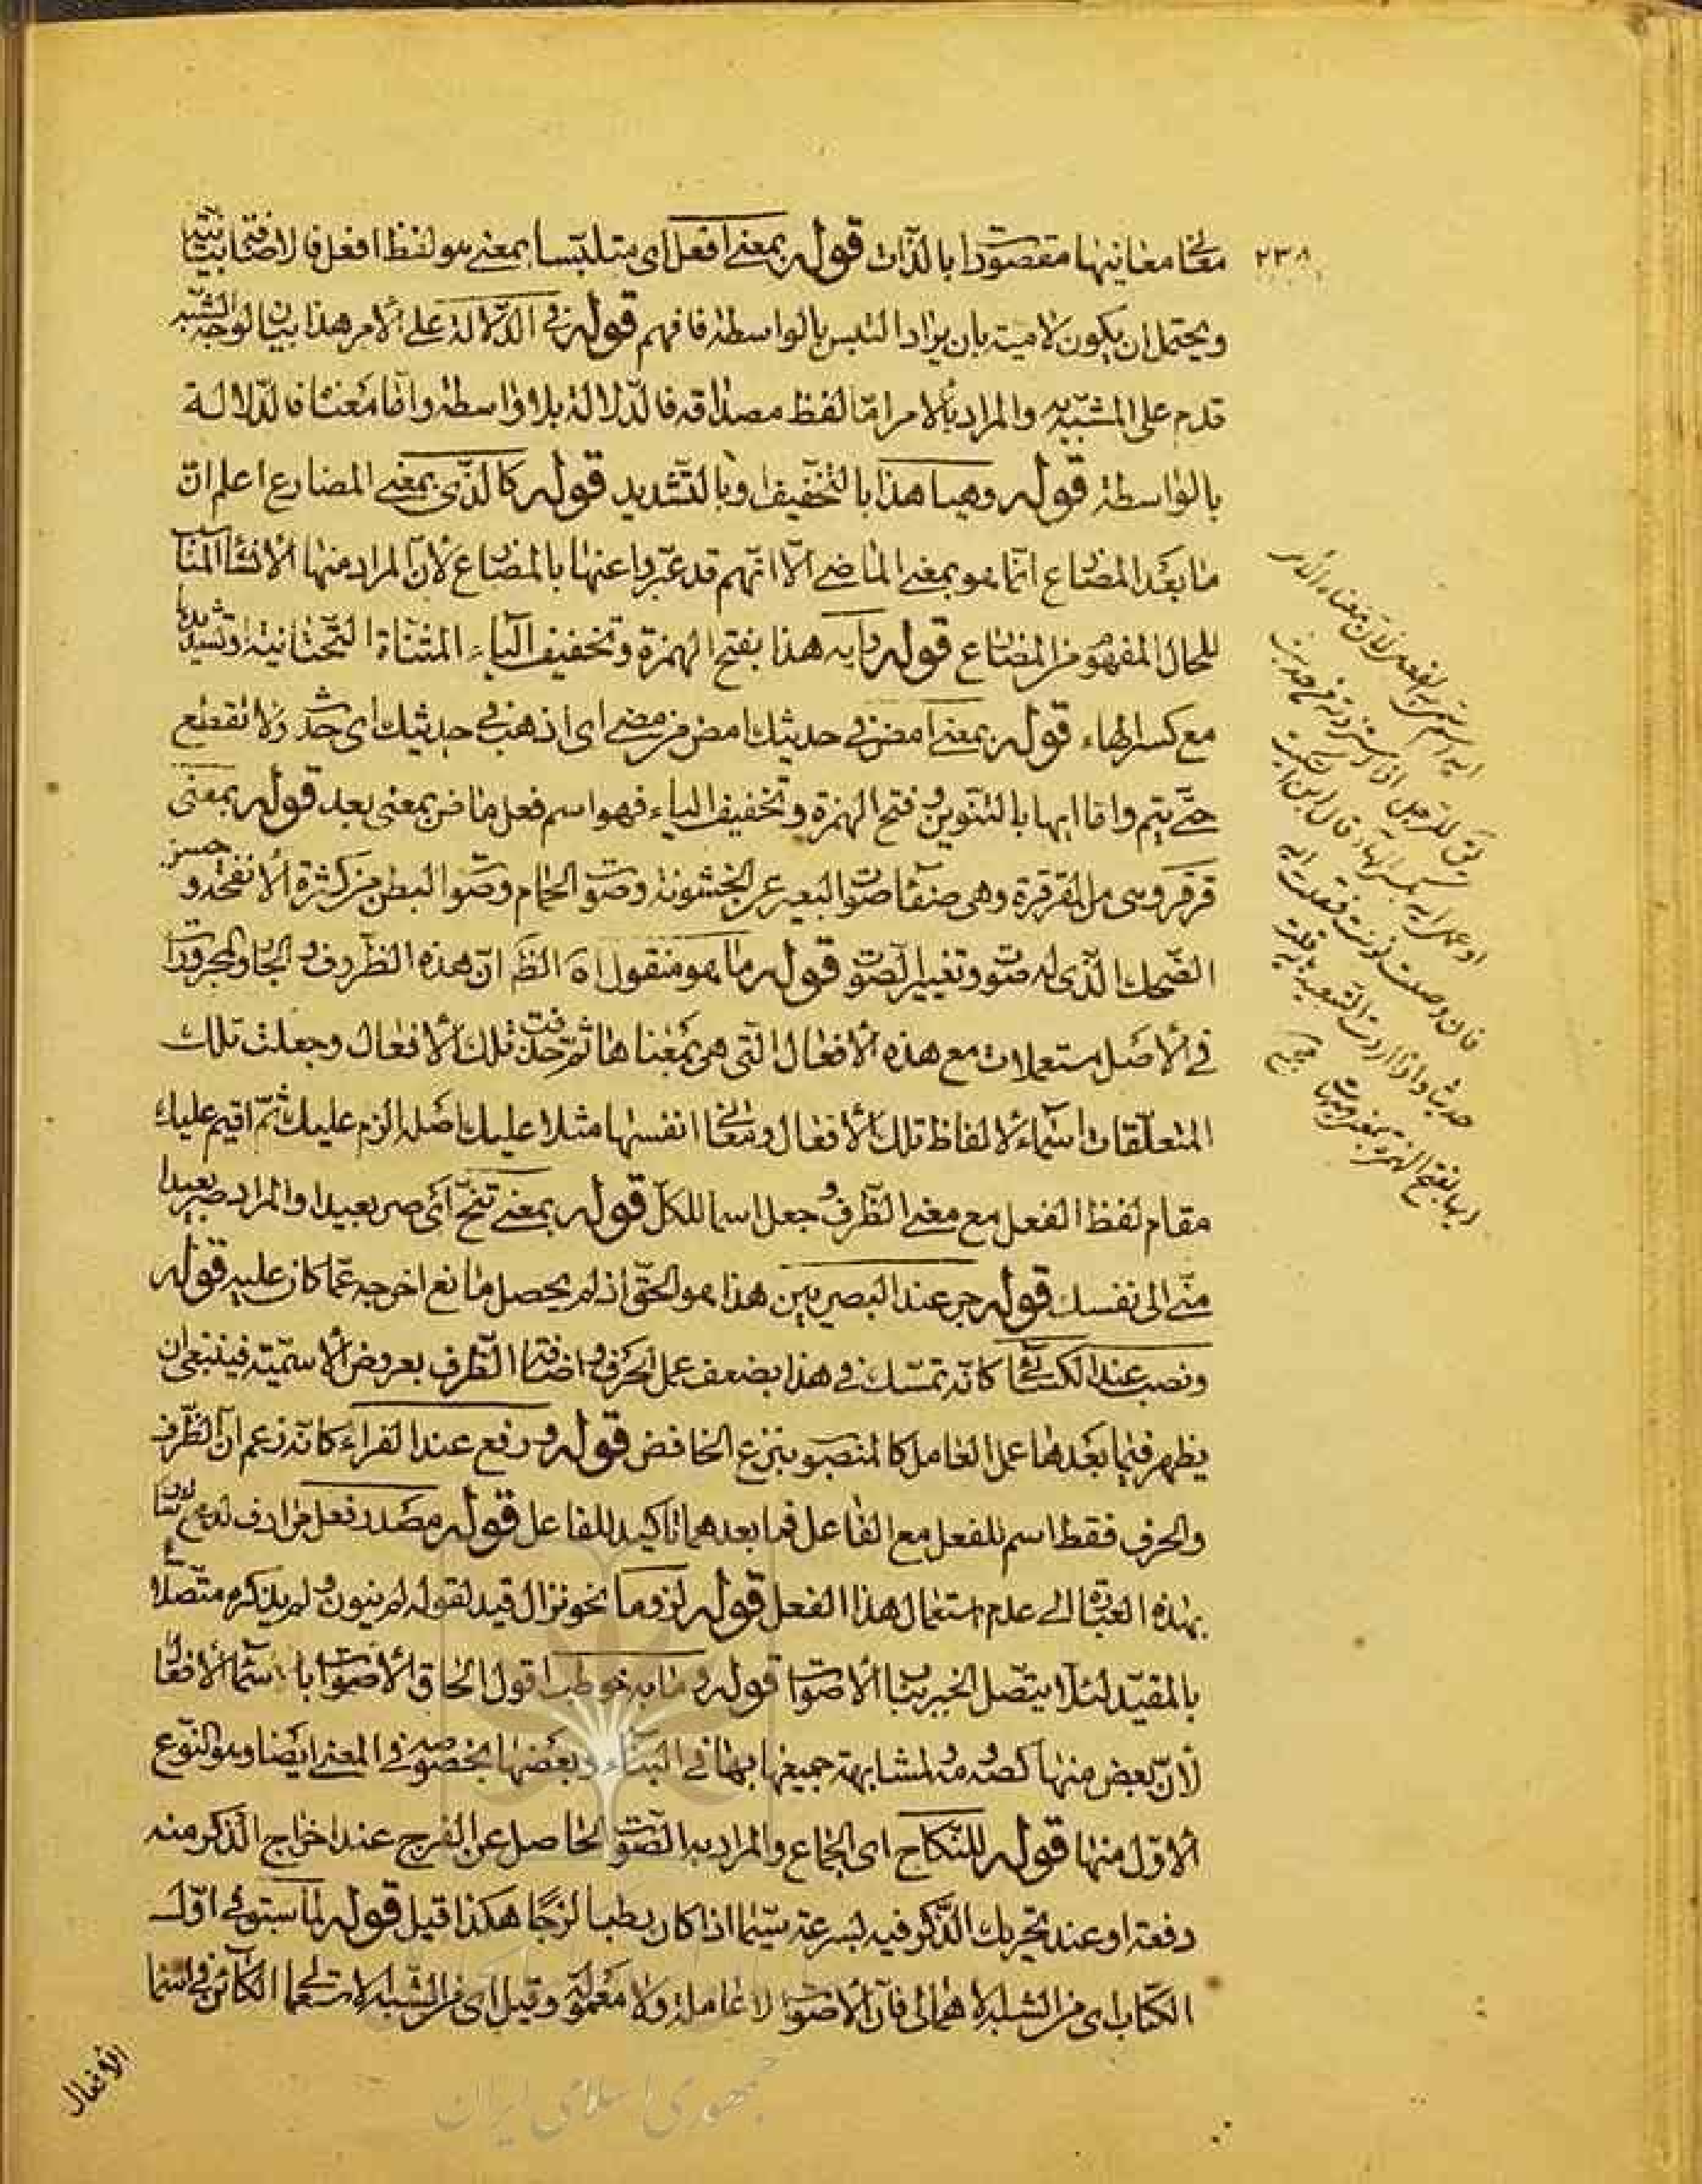 ٢٣٨
معا معانيها مقصورا بالذات قوله بمعنى افعل اى متلبسا بمعنى هو لفظ افعل فالاضافة بيانية
ويحتمل ان يكون لامية بان يراد التلبس بالواسطة فافهم قوله فى الدلالة على الامر هذا بيان لوجه الشبه
قدم على المشبه به والمراد بالامر اما لفظ مصداقه فالدلالة بلا واسطة واما معناه فالدلالة
بالواسطة قوله وهيا هذا بالتخفيف وبالتشديد قوله كالذى بمعنى المضارع اعلم ان
ما بعد المضارع انما هو بمعنى الماضى الا انهم قد عبروا عنها بالمضارع لان المراد منها الانشاء المناسب
للحال المفهوم من المضارع قوله وايه هذا بفتح الهمزة وتخفيف الياء المثناة التحتانية وتشديدها
مع كسر الهاء قوله بمعنى امض فى حديثك امض من مضى اى اذهب فى حديثك اى حدث ولا تقطع
حتى يتم واما ايها بالتنوين وفتح الهمزة وتخفيف الياء فهو اسم فعل ماض بمعنى بعد قوله بمعنى
قرقر وهى من القرقرة وهى صفاء صوت البعير عن الخشونة وصوت الحمام وصوت البطن من كثرة الانفخة وحسن
الضحك الذى له صوت وتغيير الصوت قوله ما هو منقول اه الظ ان هذه الظروف والجار والمجرورات
فى الاصل مستعملات مع هذه الافعال التى هى بمعناها ثم حذفت تلك الافعال وجعلت تلك
المتعلقات اسماء لالفاظ تلك الافعال ومعانى انفسها مثلا عليك اصله الزم عليك ثم اقيم عليك
مقام لفظ الفعل مع معنى الظرف وجعل اسما للكل قوله بمعنى تنح اى صر بعيدا والمراد صر بعيدا
منى الى نفسك قوله جر عند البصريين هذا هو الحق اذ لم يحصل مانع اخرجه عما كان عليه قوله
ونصب عند الكسائى كانه تمسك فى هذا بضعف عمل الحرف واضافة الظرف بعروض الاسمية فينبغى ان
يظهر فيما بعدها عمل العامل كالمنصوب بنزع الخافض قوله ورفع عند الفراء كانه زعم ان الظرف
والحرف فقط اسم للفعل مع الفاعل فما بعدهما تاكيد للفاعل قوله مصدر فعل مرادف لدع
بهذه العبارة الى عدم استعمال هذا الفعل قوله لزوما نحو نزال قيد لقوله لم ينون ولم يذكره متصلا
بالمقيد لئلا يتصل الخبر بباب الاصوات قوله وما به خوطب اقول الحاق الاصوات باسماء الافعال
لان بعض منها كصه ومه لمشابهة جميعها بها فى البناء وبعضها بخصوصه فى المعنى ايضا وهو النوع
الاول منها قوله للنكاح اى الجماع والمراد به الصوت الحاصل عن الفرج عند اخراج الذكر منه
دفعة او عند تحريك الذكر فيه بسرعة سيما اذا كان رطبا لزجا هكذا قيل قوله لما سبق فى اول
الكتاب اى من الشبه الاهمالى فان الاصوات لا عاملة ولا معمولة وقيل اى من الشبه الاستعمالى الكائن فى اسماء
الافعال
ايه اسم سمى به الفعل لان معناه الامر
يق للرجل اذا استزدته من حديث
او عمل ايه بكسر الهاء قال ابن السكيت
فان وصلت نونت فقلت ايه
حديثا واذا اردت التبعيد قلت
ايها بفتح الهمزة بمعنى هيهات
جمهوری اسلامی ایران